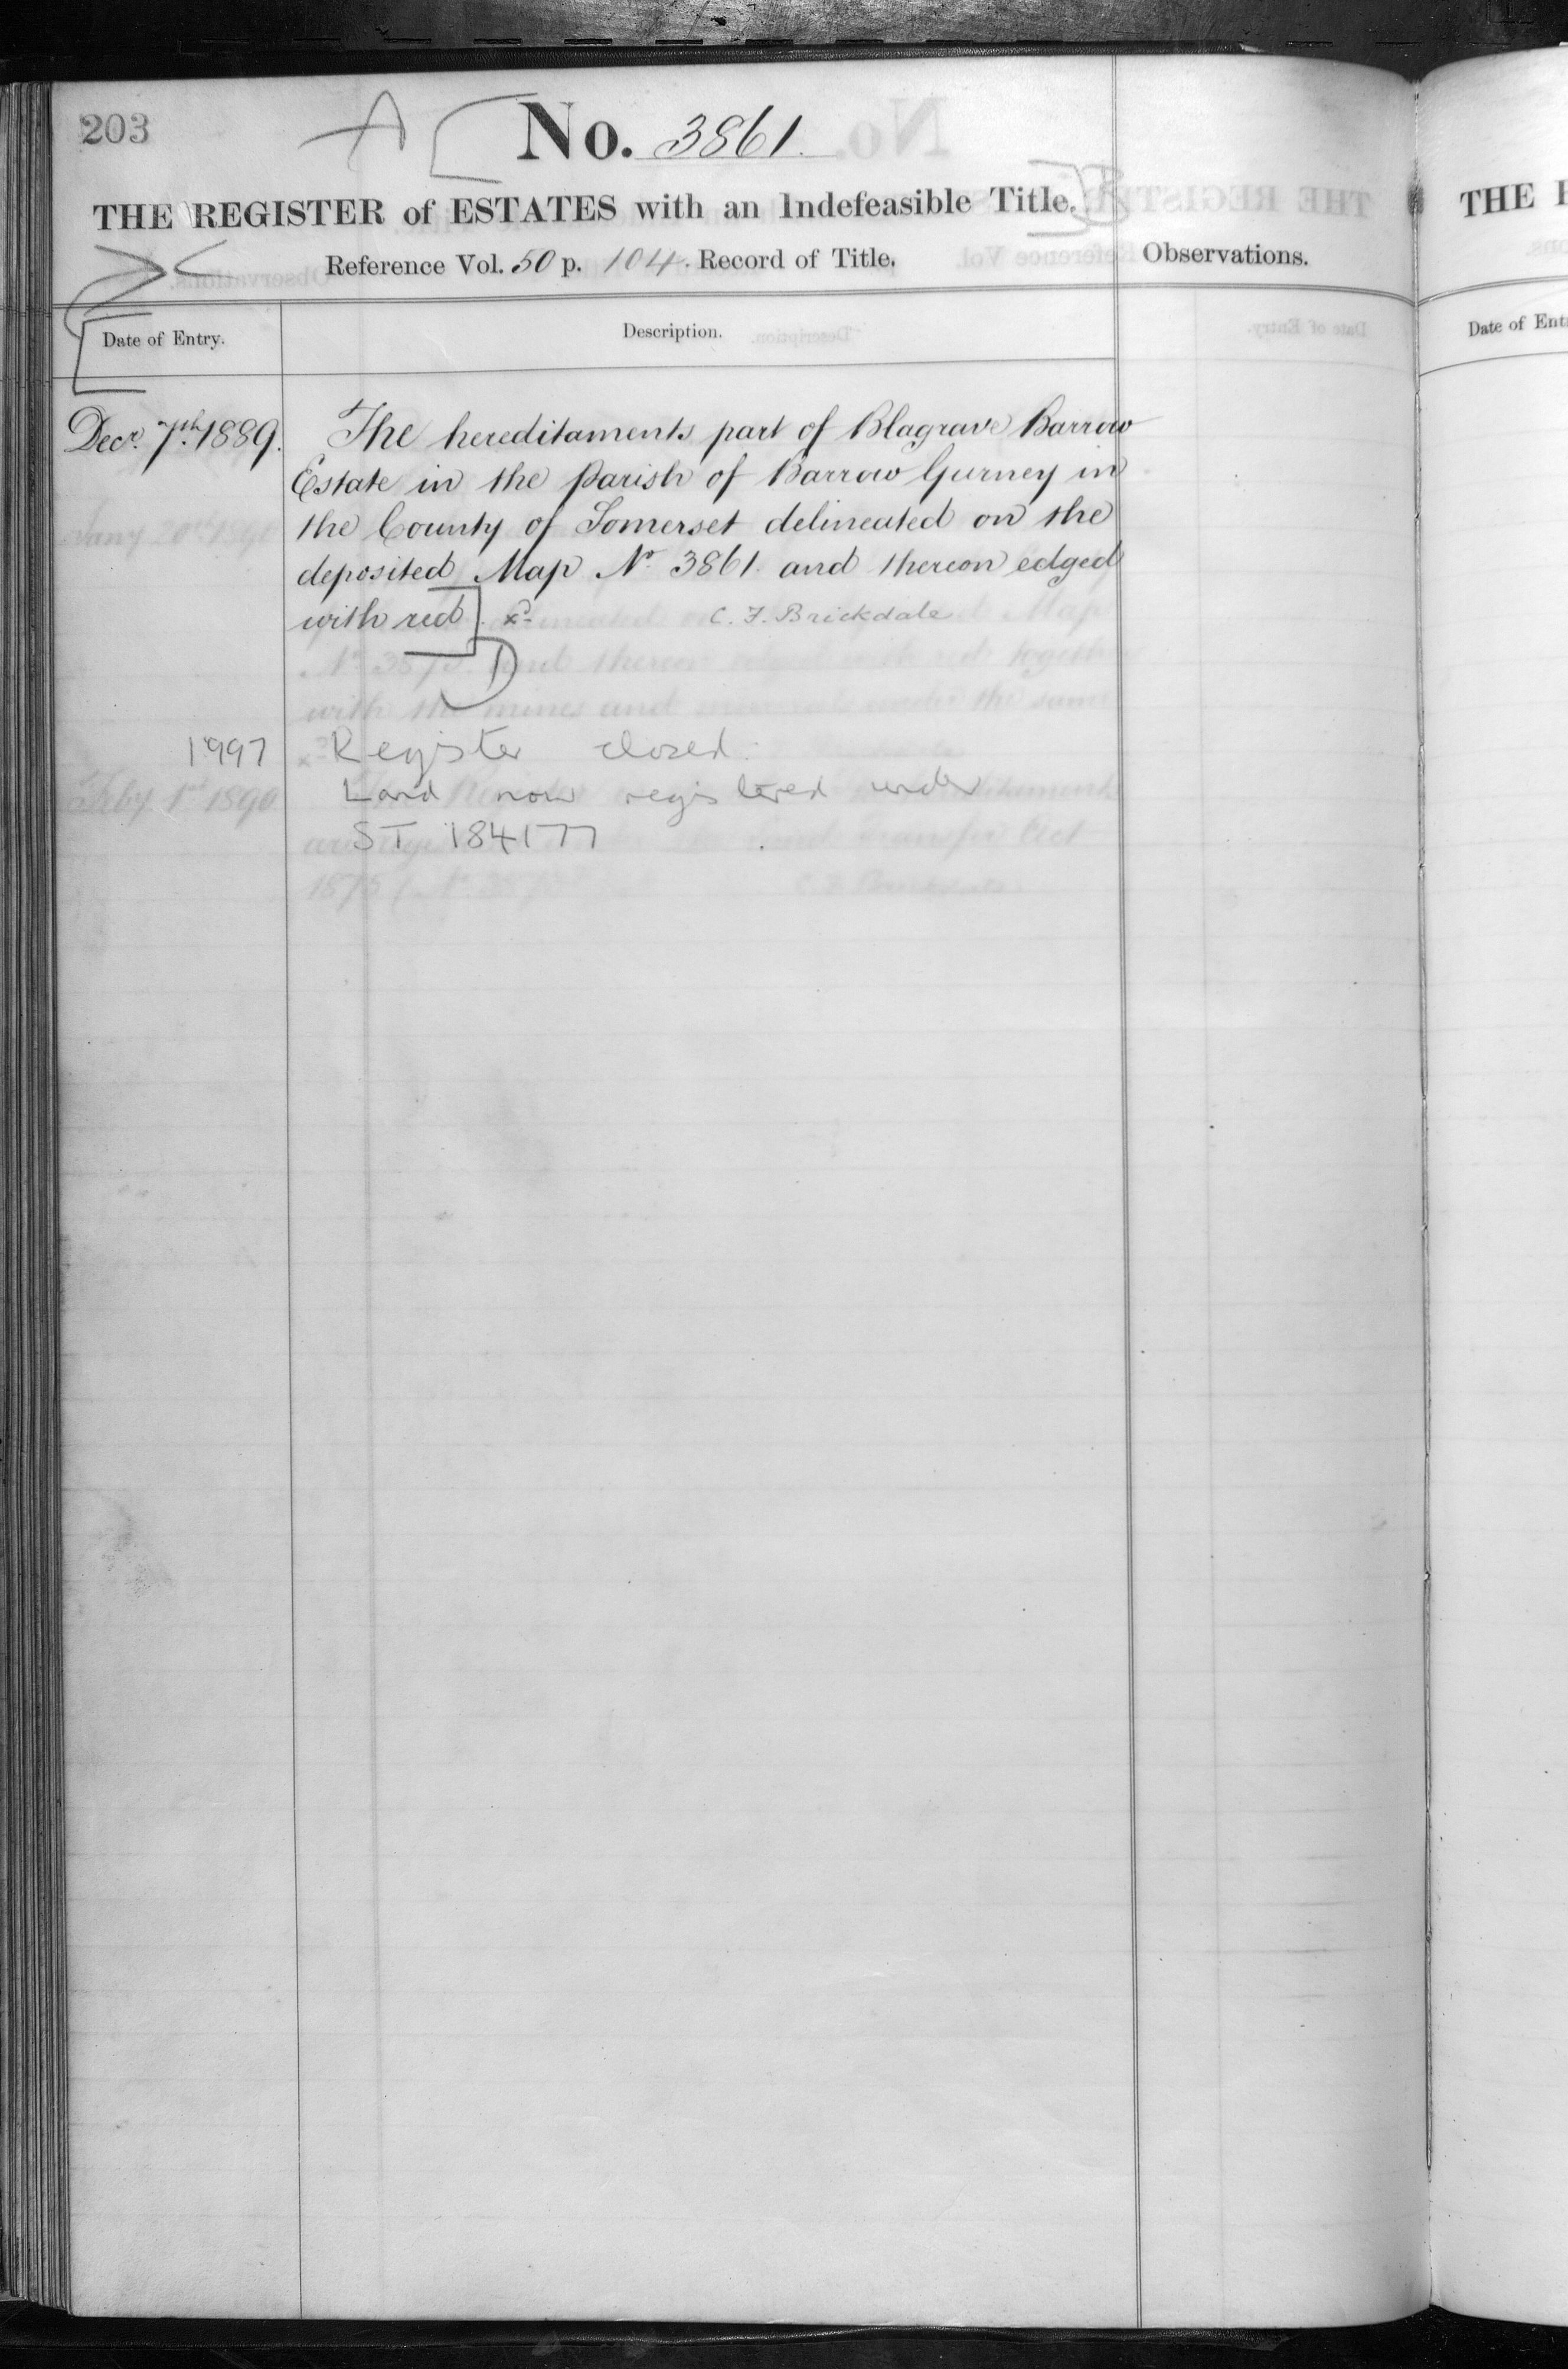 203
A
No. 3861.
THE REGISTER of ESTATES with an Indefeasible Title.
Reference Vol. 50 p. 104. Record of Title.
Observations.
Date of Entry.
Description.
Decr. 7th. 1889.
The hereditaments part of Blagrave Barrow
Estate in the Parish of Barrow Gurney in
the County of Somerset delineated on the
deposited Map No. 3861. and thereon edged
with red
C. F. Brickdale
1997
Register closed.
Land now registered under
ST 184177
THE
Date of Ent